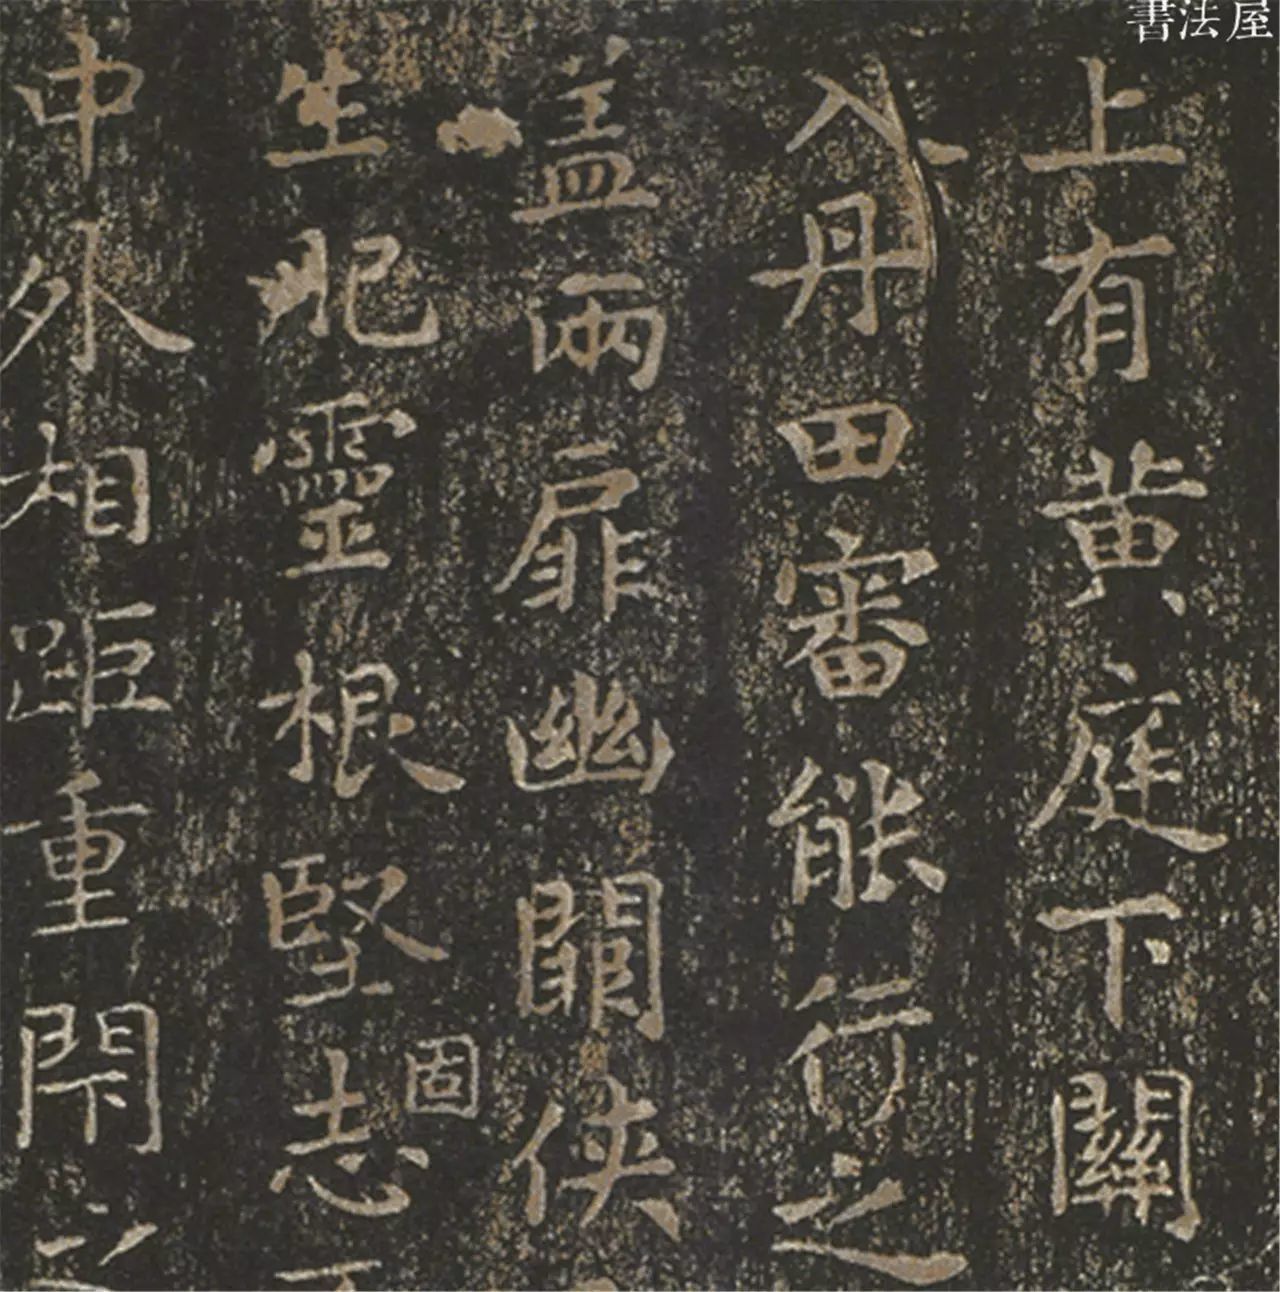 書法屋
上有黄庭下關
入丹田審能行之
盖兩扉幽闕侠
生肥靈根堅固志
中外相距重閇之